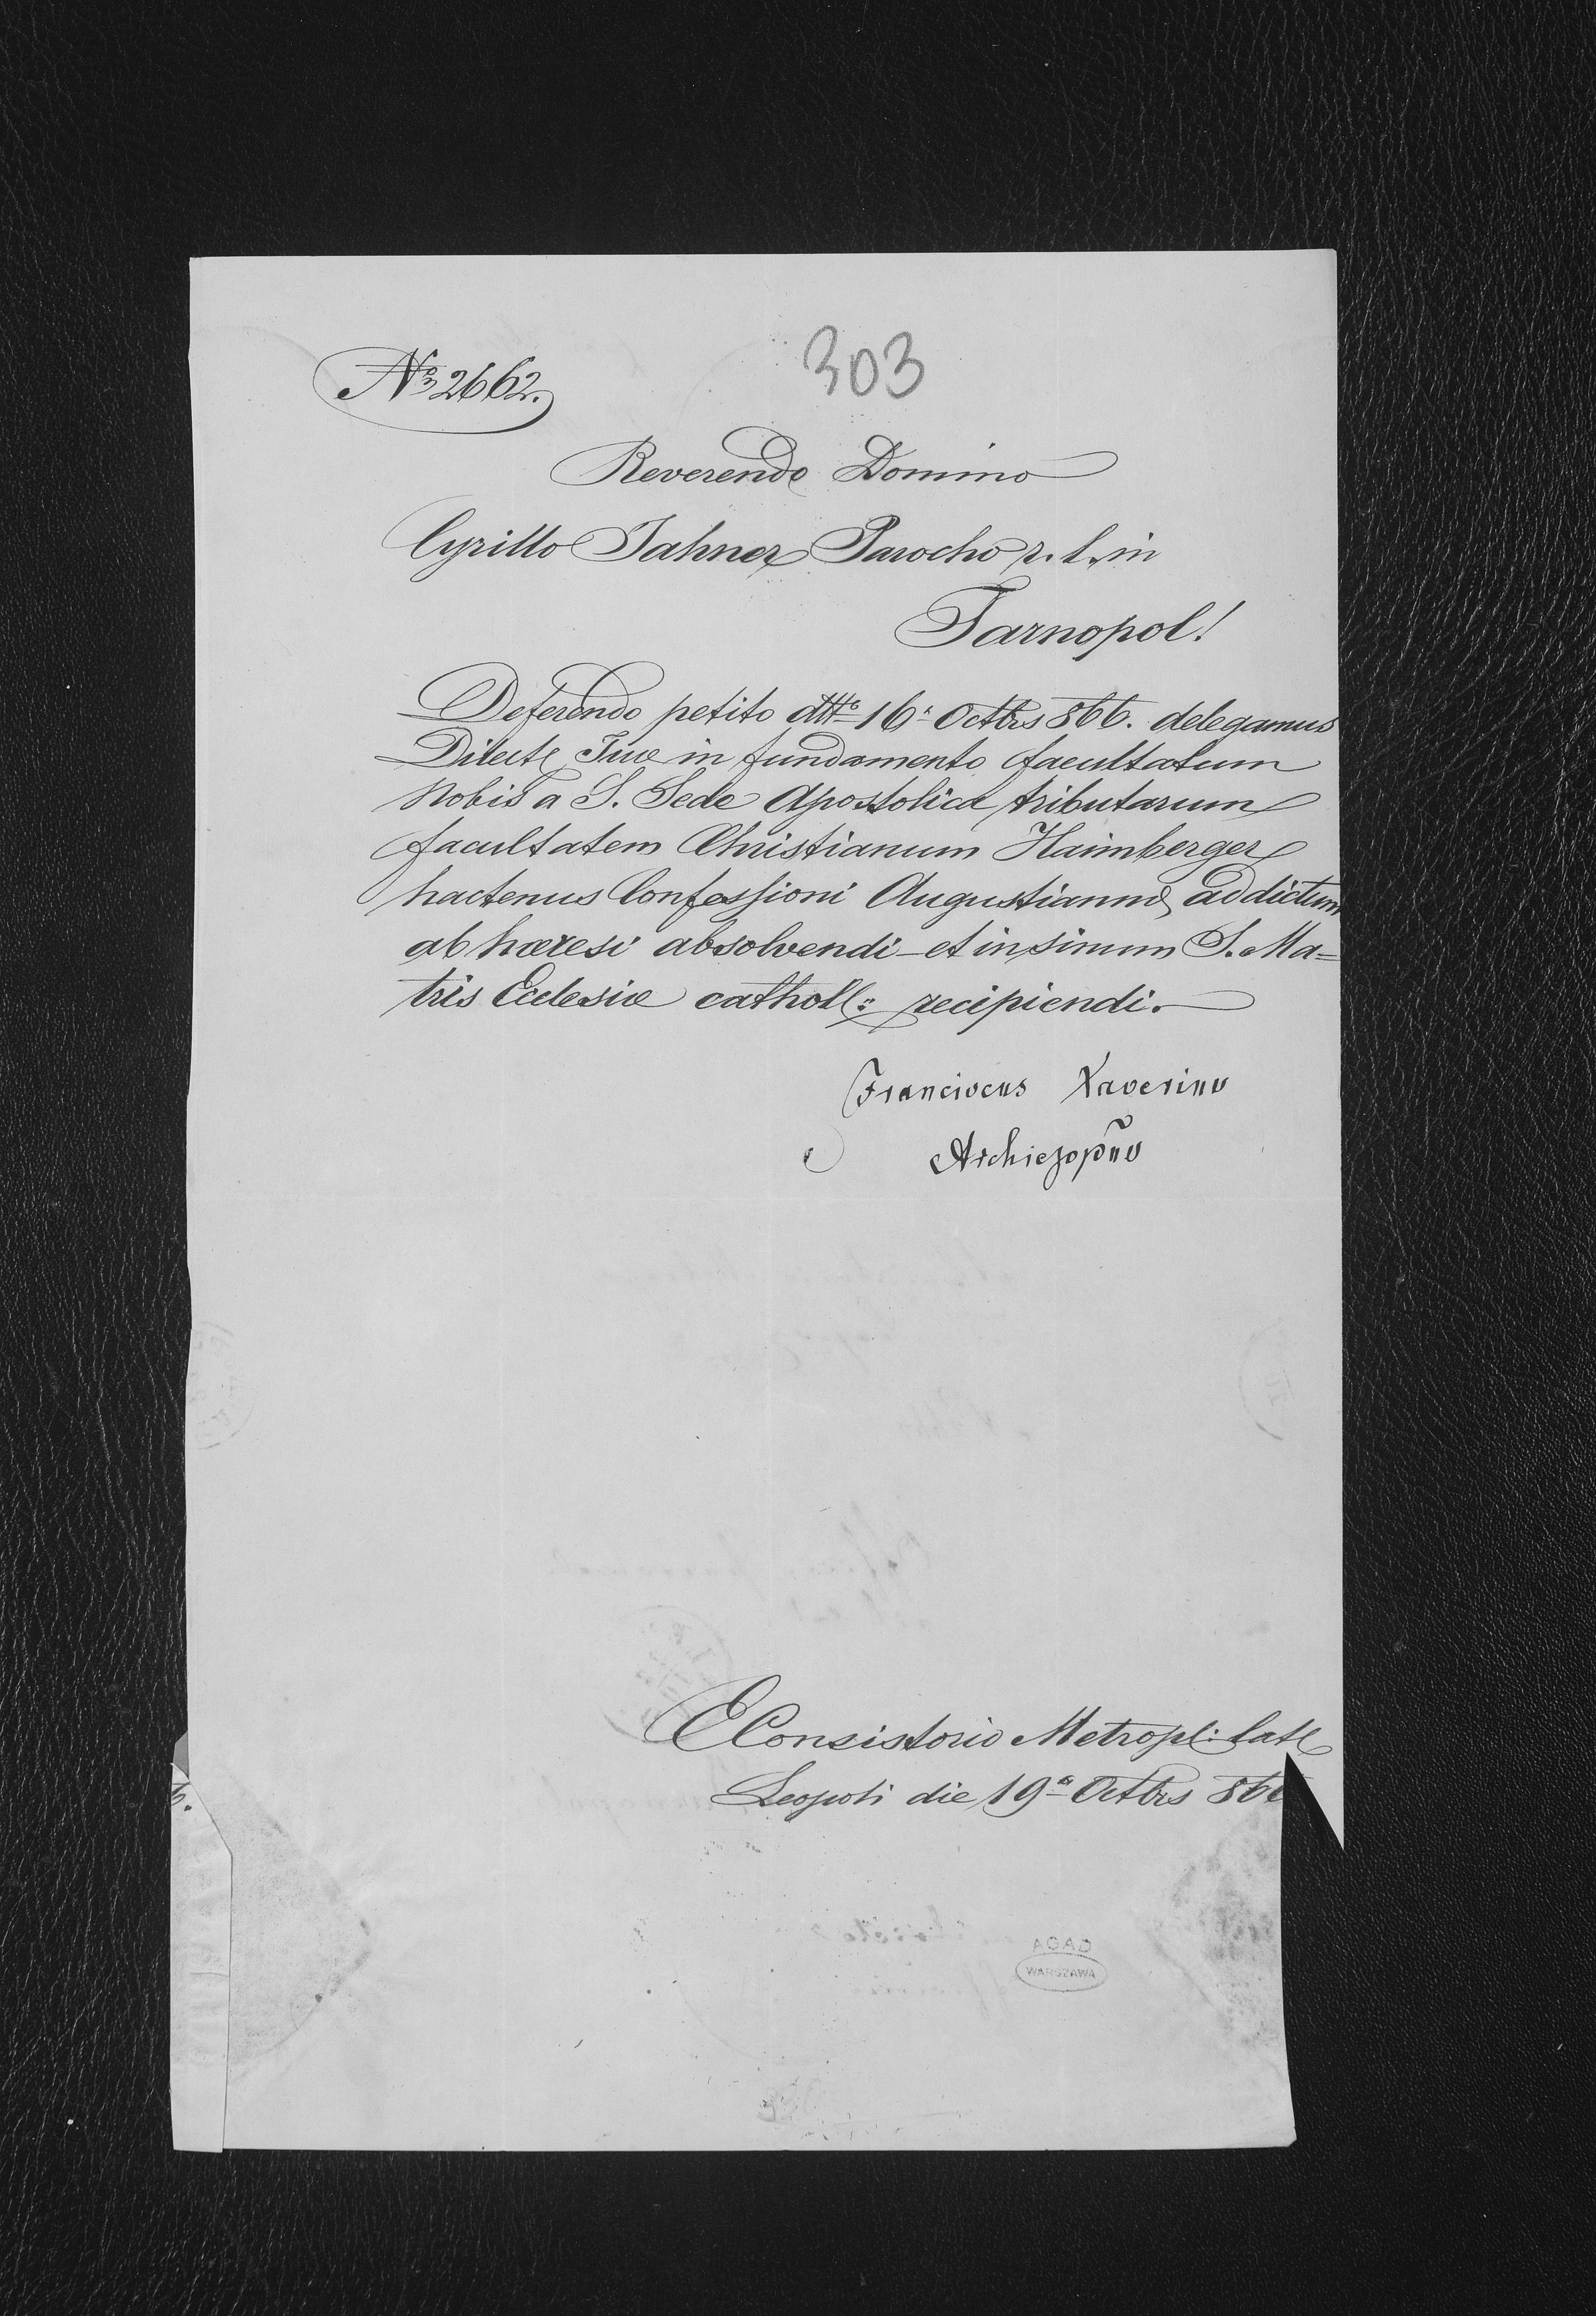 303
№ 2662.
Reverendo Domino
Cyrillo Jahner Parocho r. l. in
Tarnopol!
Deferendo petito ddto 16a Octbrs 866. delegamus
Dilecte Tuæ in fundamento facultatum
Nobis a S. Sede Apostolica tributarum
facultatem Christianum Haimberger
hactenus Confessioni Augustianne addictum
ab hæresi absolvendi et in sinum S. Ma=
tris Ecclesiæ catholl: recipiendi.
Franciscus Xaverius
Archieppus
E Consistorio Metropl: latl
Leopoli die 19a Octbrs 866
AGAD
WARSZAWA